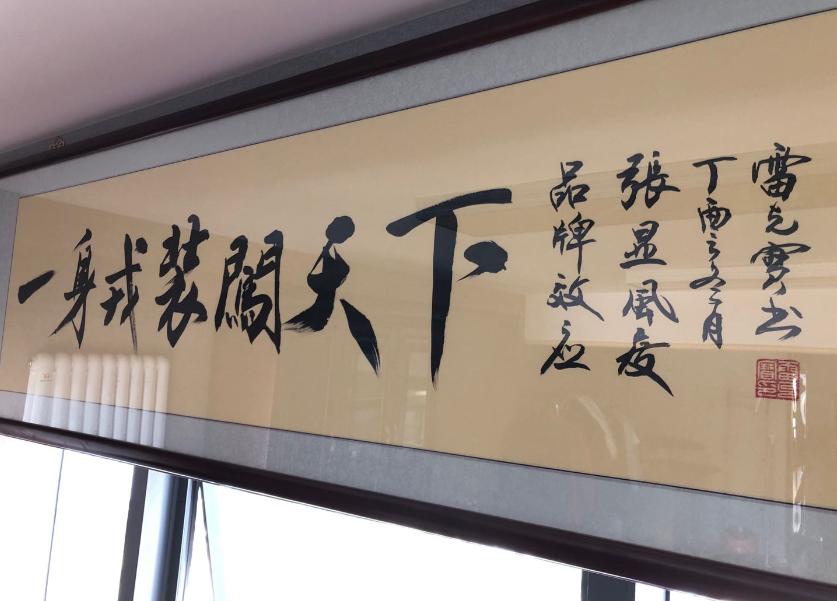 一身戎装闖天下
品牌效应
張显風度
丁酉之冬月
雷克寶书